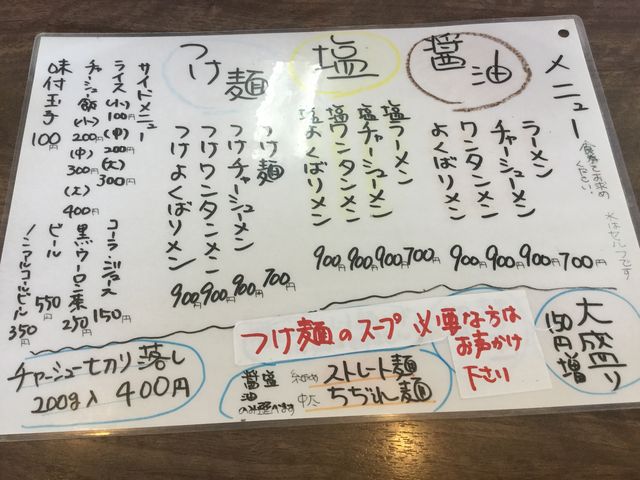 メニュー
食券でお求め
ください
水はセルフです
醤油
ラーメン 700円
チャーシューメン 900円
ワンタンメン 900円
よくばりメン 900円
塩
塩ラーメン 700円
塩チャーシューメン 900円
塩ワンタンメン 900円
塩よくばりメン 900円
つけ麺
つけ麺 700円
つけチャーシューメン 900円
つけワンタンメン 900円
つけよくばりメン 900円
サイドメニュー
ライス(小)100円
(中)200円
(大)300円
チャーシュー飯(小)200円
(中)300円
(大)400円
味付玉子 100円
コーラ・ジュース 150円
黒ウーロン茶 250円
ビール 550円
ノンアルコールビール 350円
大盛り
150円増
つけ麺のスープ必要な方は
お声かけ
下さい
醤油 塩
のみ選べます
ストレート麺
中太 ちぢれ麺
チャーシュー切り落し
200g入 400円